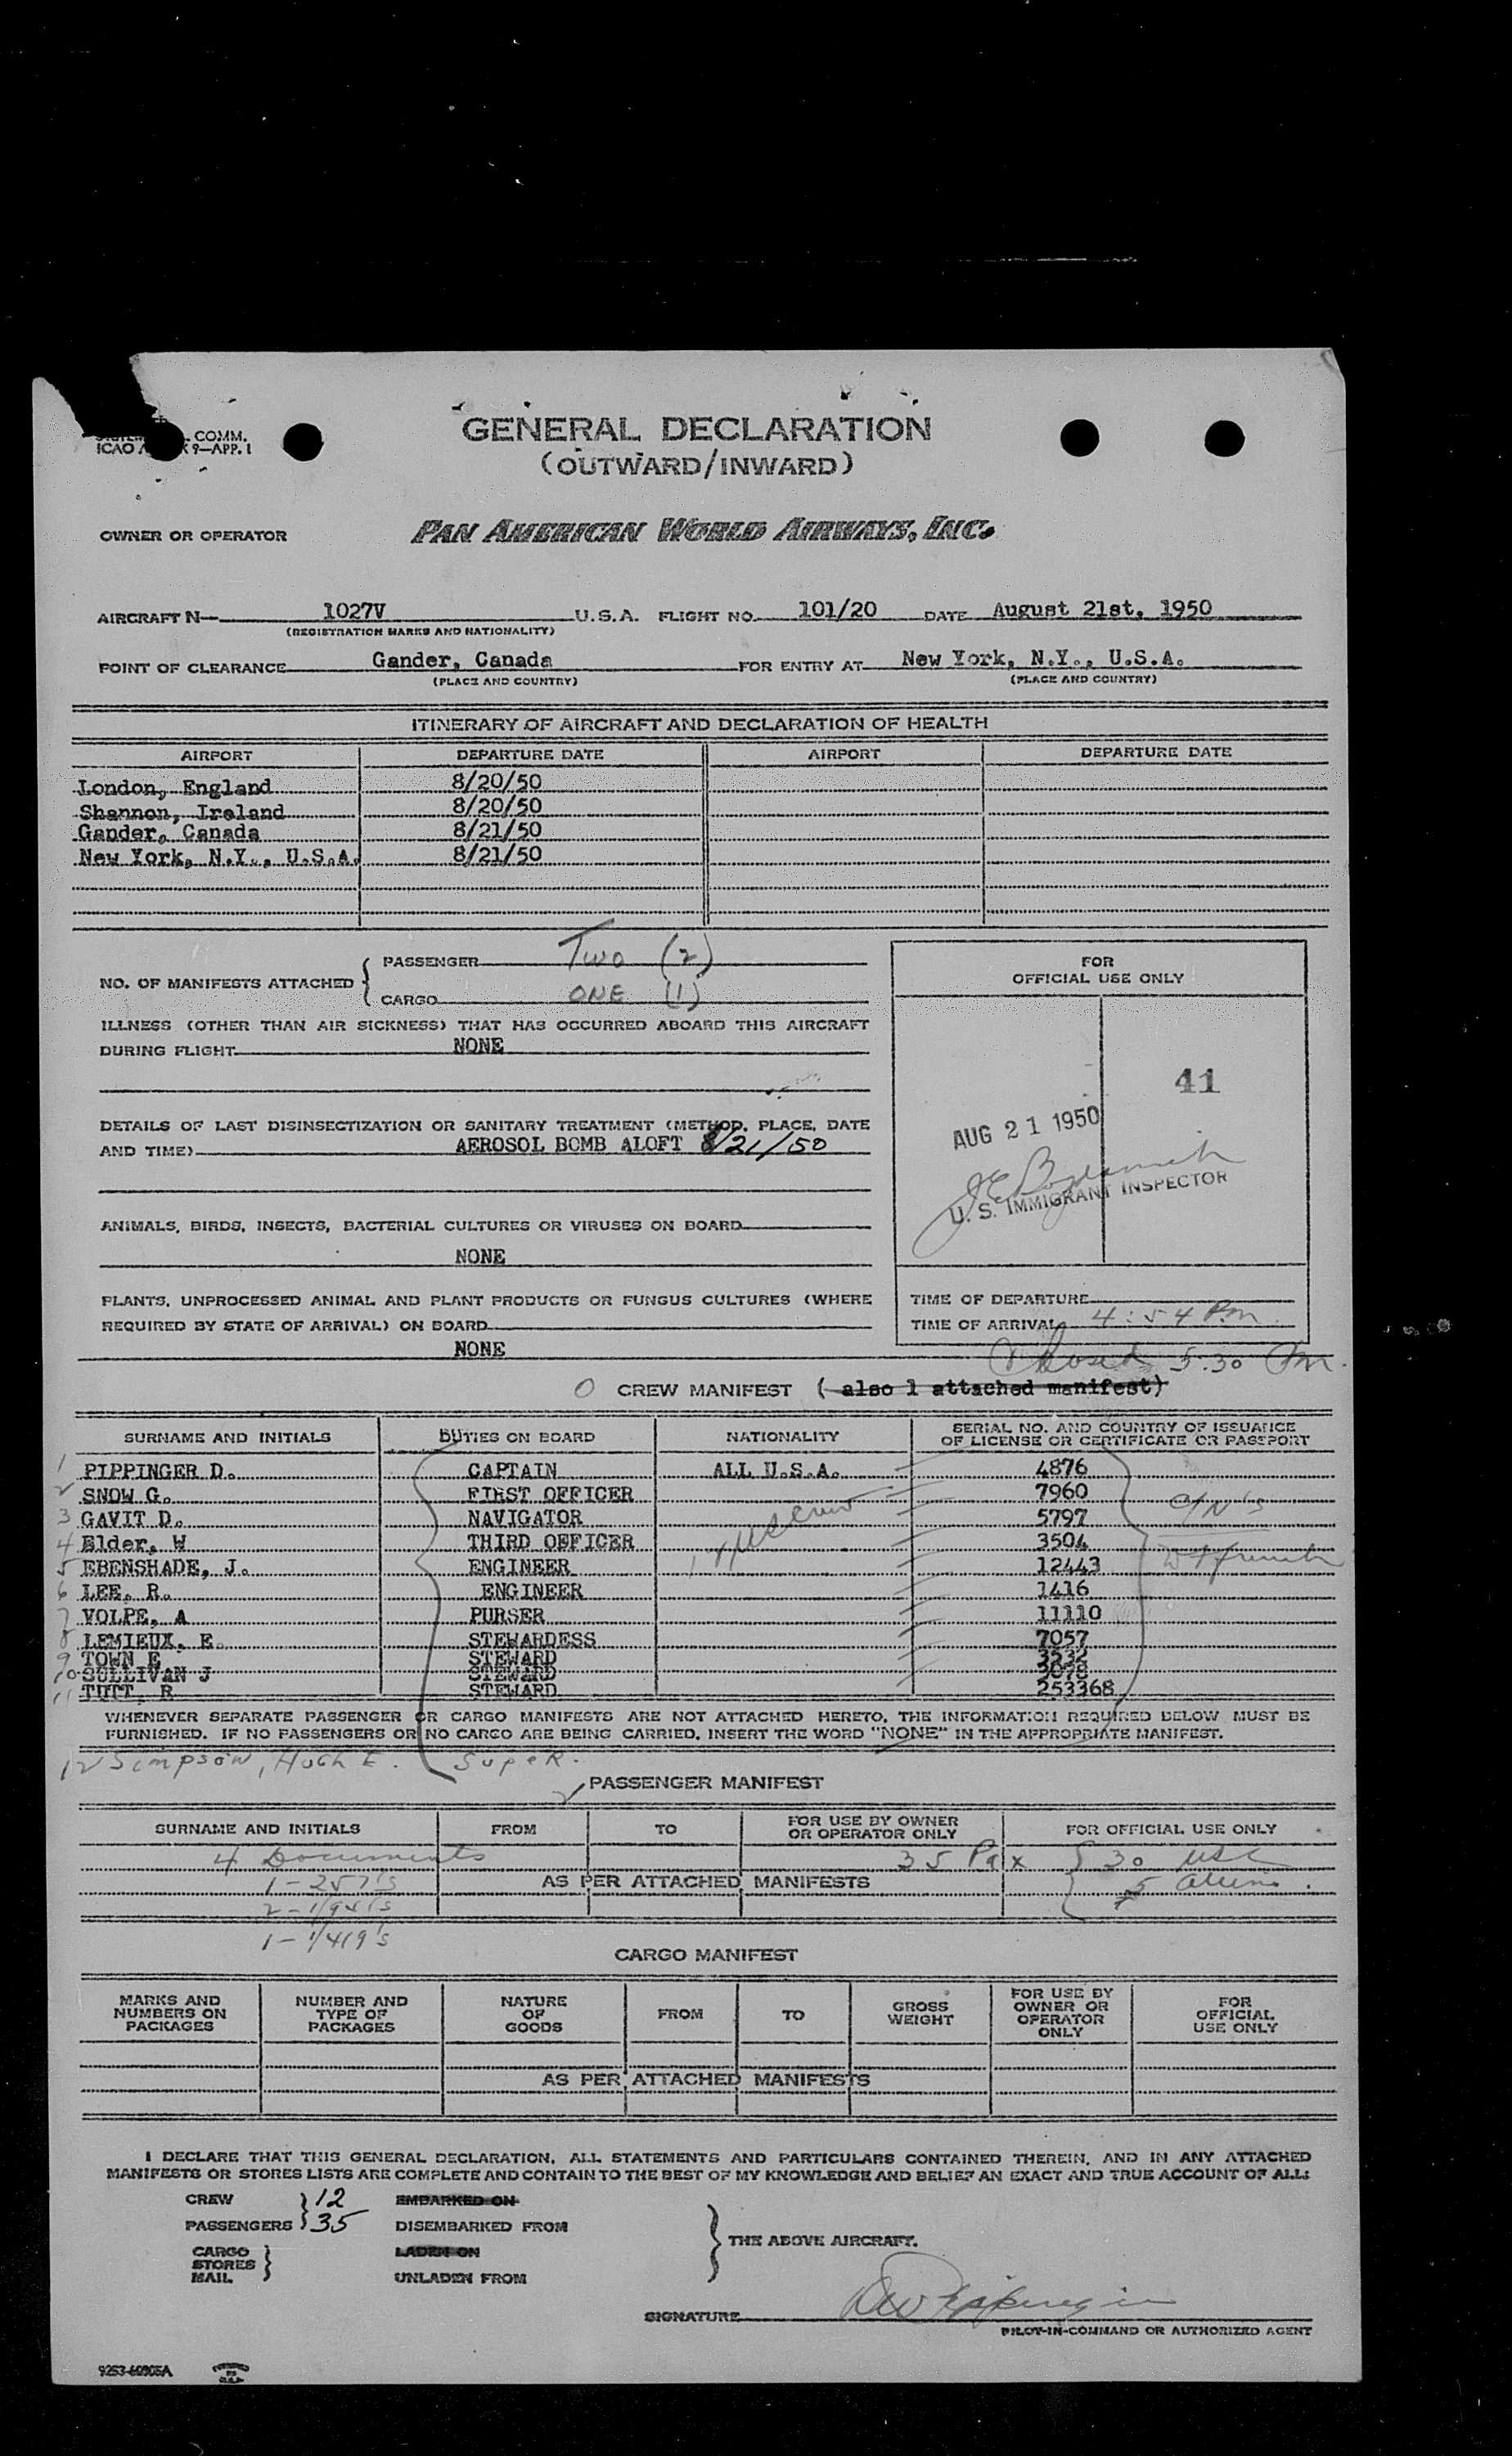 COMM.
ICAO 9—APP. 1
GENERAL DECLARATION
(OUTWARD/INWARD)
OWNER OR OPERATOR PAN AMERICAN WORLD AIRWAYS, INC.
AIRCRAFT N— 1027V U.S.A. FLIGHT NO. 101/20 DATE August 21st, 1950
(REGISTRATION MARKS AND NATIONALITY)
POINT OF CLEARANCE Gander, Canada FOR ENTRY AT New York, N.Y., U.S.A.
(PLACE AND COUNTRY) (PLACE AND COUNTRY)
ITINERARY OF AIRCRAFT AND DECLARATION OF HEALTH
AIRPORT DEPARTURE DATE AIRPORT DEPARTURE DATE
London, England 8/20/50
Shannon, Ireland 8/20/50
Gander, Canada 8/21/50
New York, N.Y., U.S.A. 8/21/50
NO. OF MANIFESTS ATTACHED { PASSENGER Two (2)
CARGO ONE (1)
ILLNESS (OTHER THAN AIR SICKNESS) THAT HAS OCCURRED ABOARD THIS AIRCRAFT
DURING FLIGHT NONE
DETAILS OF LAST DISINSECTIZATION OR SANITARY TREATMENT (METHOD, PLACE, DATE
AND TIME) AEROSOL BOMB ALOFT 8/21/50
ANIMALS, BIRDS, INSECTS, BACTERIAL CULTURES OR VIRUSES ON BOARD
NONE
PLANTS, UNPROCESSED ANIMAL AND PLANT PRODUCTS OR FUNGUS CULTURES (WHERE
REQUIRED BY STATE OF ARRIVAL) ON BOARD
NONE
FOR
OFFICIAL USE ONLY
41
AUG 21 1950
U. S. IMMIGRANT INSPECTOR
TIME OF DEPARTURE
TIME OF ARRIVAL 4:54 Pm
5:30 Pm.
0 CREW MANIFEST (also 1 attached manifest)
SURNAME AND INITIALS DUTIES ON BOARD NATIONALITY SERIAL NO. AND COUNTRY OF ISSUANCE
OF LICENSE OR CERTIFICATE OR PASSPORT
1 PIPPINGER D. CAPTAIN ALL U.S.A. 4876
2 SNOW G. FIRST OFFICER 7960
3 GAVIT D. NAVIGATOR 5797
4 Elder, W THIRD OFFICER 3504
5 EBENSHADE, J. ENGINEER 12443
6 LEE, R. ENGINEER 1416
7 VOLPE, A PURSER 11110
8 LEMIEUX, E. STEWARDESS 7057
9 TOWN E STEWARD 3232
10 SULLIVAN J STEWARD 3078
11 TUTT, R STEWARD 253368
WHENEVER SEPARATE PASSENGER OR CARGO MANIFESTS ARE NOT ATTACHED HERETO, THE INFORMATION REQUIRED BELOW MUST BE
FURNISHED. IF NO PASSENGERS OR NO CARGO ARE BEING CARRIED, INSERT THE WORD "NONE" IN THE APPROPRIATE MANIFEST.
12 Simpson, Hugh E. Super.
PASSENGER MANIFEST
SURNAME AND INITIALS FROM TO FOR USE BY OWNER
OR OPERATOR ONLY FOR OFFICIAL USE ONLY
4 Documents 35 Pax { 30 USC
1 - 257's AS PER ATTACHED MANIFESTS 5 aliens.
1 - 1/419's
CARGO MANIFEST
MARKS AND
NUMBERS ON
PACKAGES
NUMBER AND
TYPE OF
PACKAGES
NATURE
OF
GOODS
FROM
TO
GROSS
WEIGHT
FOR USE BY
OWNER OR
OPERATOR
ONLY
FOR
OFFICIAL
USE ONLY
AS PER ATTACHED MANIFESTS
I DECLARE THAT THIS GENERAL DECLARATION, ALL STATEMENTS AND PARTICULARS CONTAINED THEREIN, AND IN ANY ATTACHED
MANIFESTS OR STORES LISTS ARE COMPLETE AND CONTAIN TO THE BEST OF MY KNOWLEDGE AND BELIEF AN EXACT AND TRUE ACCOUNT OF ALL:
CREW } 12 EMBARKED ON
PASSENGERS } 35 DISEMBARKED FROM
} THE ABOVE AIRCRAFT.
CARGO LADEN ON
STORES }
MAIL UNLADEN FROM
SIGNATURE
PILOT-IN-COMMAND OR AUTHORIZED AGENT
9253-60905A